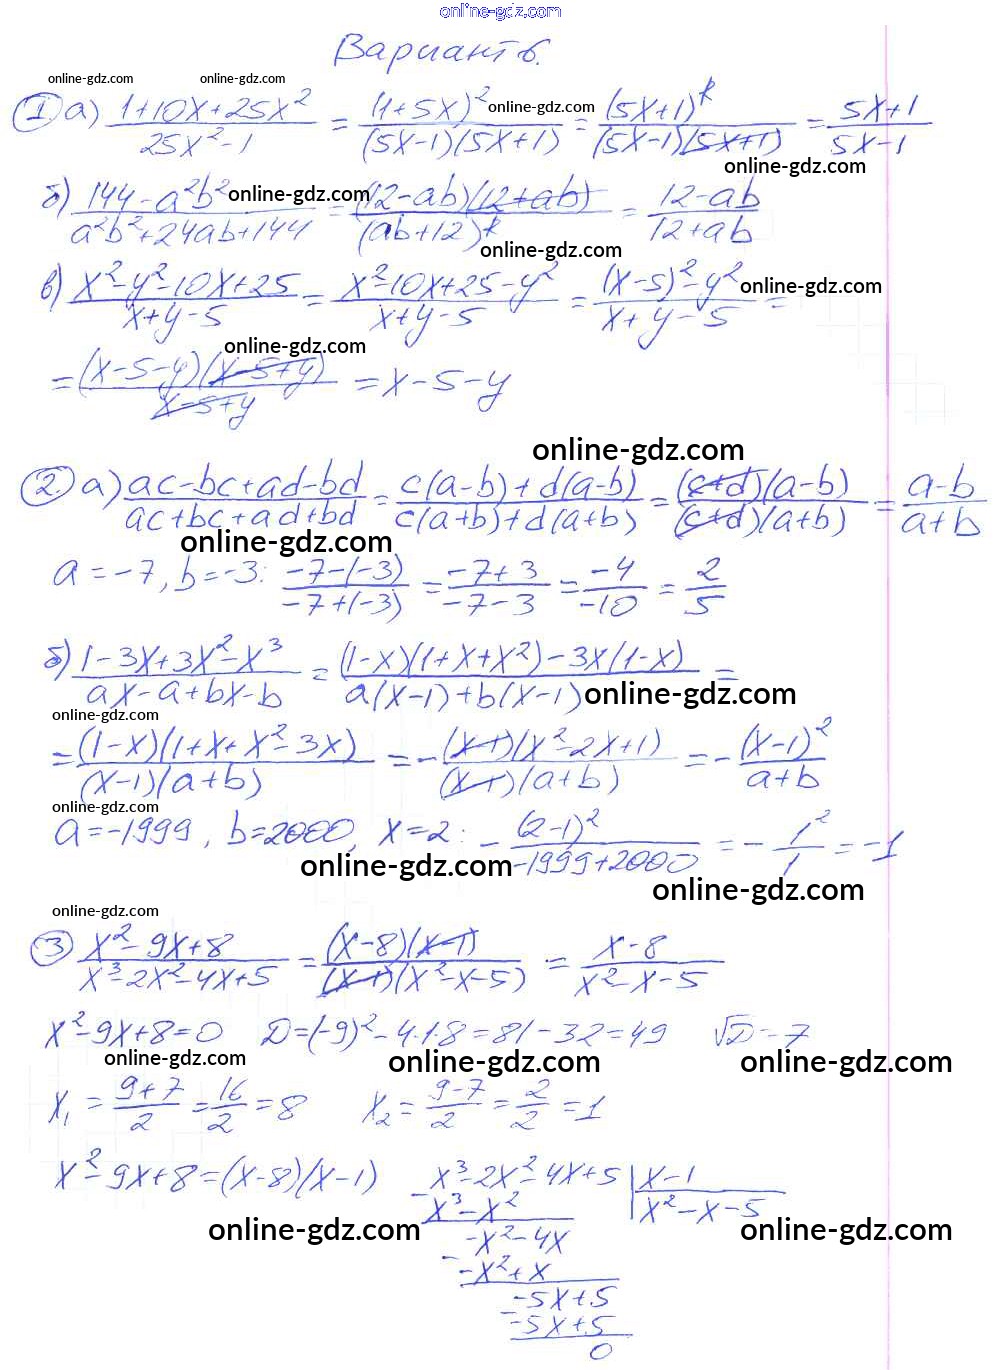 online-gdz.com
Вариант 6.
online-gdz.com online-gdz.com
① а) (1+10x+25x²)/(25x²-1) = (1+5x)²/((5x-1)(5x+1)) = (5x+1)²/((5x-1)(5x+1)) = (5x+1)/(5x-1)
online-gdz.com
online-gdz.com
б) (144-a²b²)/(a²b²+24ab+144) = (12-ab)(12+ab)/(ab+12)² = (12-ab)/(12+ab)
online-gdz.com
online-gdz.com
в) (x²-y²-10x+25)/(x+y-5) = (x²-10x+25-y²)/(x+y-5) = ((x-5)²-y²)/(x+y-5) =
online-gdz.com
online-gdz.com
= (x-5-y)(x-5+y)/(x-5+y) = x-5-y
online-gdz.com
② а) (ac-bc+ad-bd)/(ac+bc+ad+bd) = (c(a-b)+d(a-b))/(c(a+b)+d(a+b)) = (c+d)(a-b)/((c+d)(a+b)) = (a-b)/(a+b)
online-gdz.com
a=-7, b=-3: (-7-(-3))/(-7+(-3)) = (-7+3)/(-7-3) = -4/-10 = 2/5
б) (1-3x+3x²-x³)/(ax-a+bx-b) = ((1-x)(1+x+x²)-3x(1-x))/(a(x-1)+b(x-1)) =
online-gdz.com
online-gdz.com
= (1-x)(1+x+x²-3x)/((x-1)(a+b)) = -(x-1)(x²-2x+1)/((x-1)(a+b)) = -(x-1)²/(a+b)
online-gdz.com
a=-1999, b=2000, x=2: -(2-1)²/(-1999+2000) = -1²/1 = -1
online-gdz.com
online-gdz.com
online-gdz.com
③ (x²-9x+8)/(x³-2x²-4x+5) = (x-8)(x-1)/((x-1)(x²-x-5)) = (x-8)/(x²-x-5)
x²-9x+8=0 D=(-9)²-4·1·8=81-32=49 √D=7
online-gdz.com online-gdz.com online-gdz.com
x₁ = (9+7)/2 = 16/2 = 8 x₂ = (9-7)/2 = 2/2 = 1
x²-9x+8=(x-8)(x-1) x³-2x²-4x+5 | x-1
x³-x² | x²-x-5
online-gdz.com online-gdz.com online-gdz.com
-x²-4x
-x²+x
-5x+5
-5x+5
0